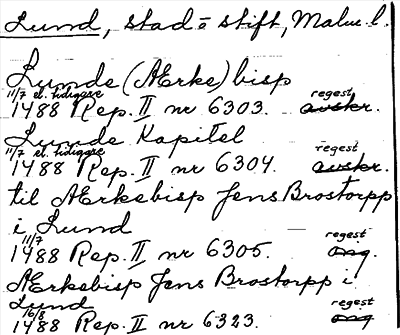 Lund, stad = stift, Malm. l.
Lunde (Ærke) bisp
11/7 el. tidigare regest
1488 Rep. II nr 6303. avskr.
Lunde Kapitel
11/7 el. tidigare regest
1488 Rep. II nr 6304. avskr.
til Ærkebisp Jens Brostorpp
i Lund
11/7 regest
1488 Rep. II nr 6305. orig.
Ærkebisp Jens Brostorpp i
Lund
16/8 regest
1488 Rep. II nr 6323. orig